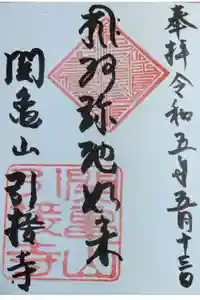 奉拝令和五年五月十三日
阿弥陀如来
関亀山引接寺